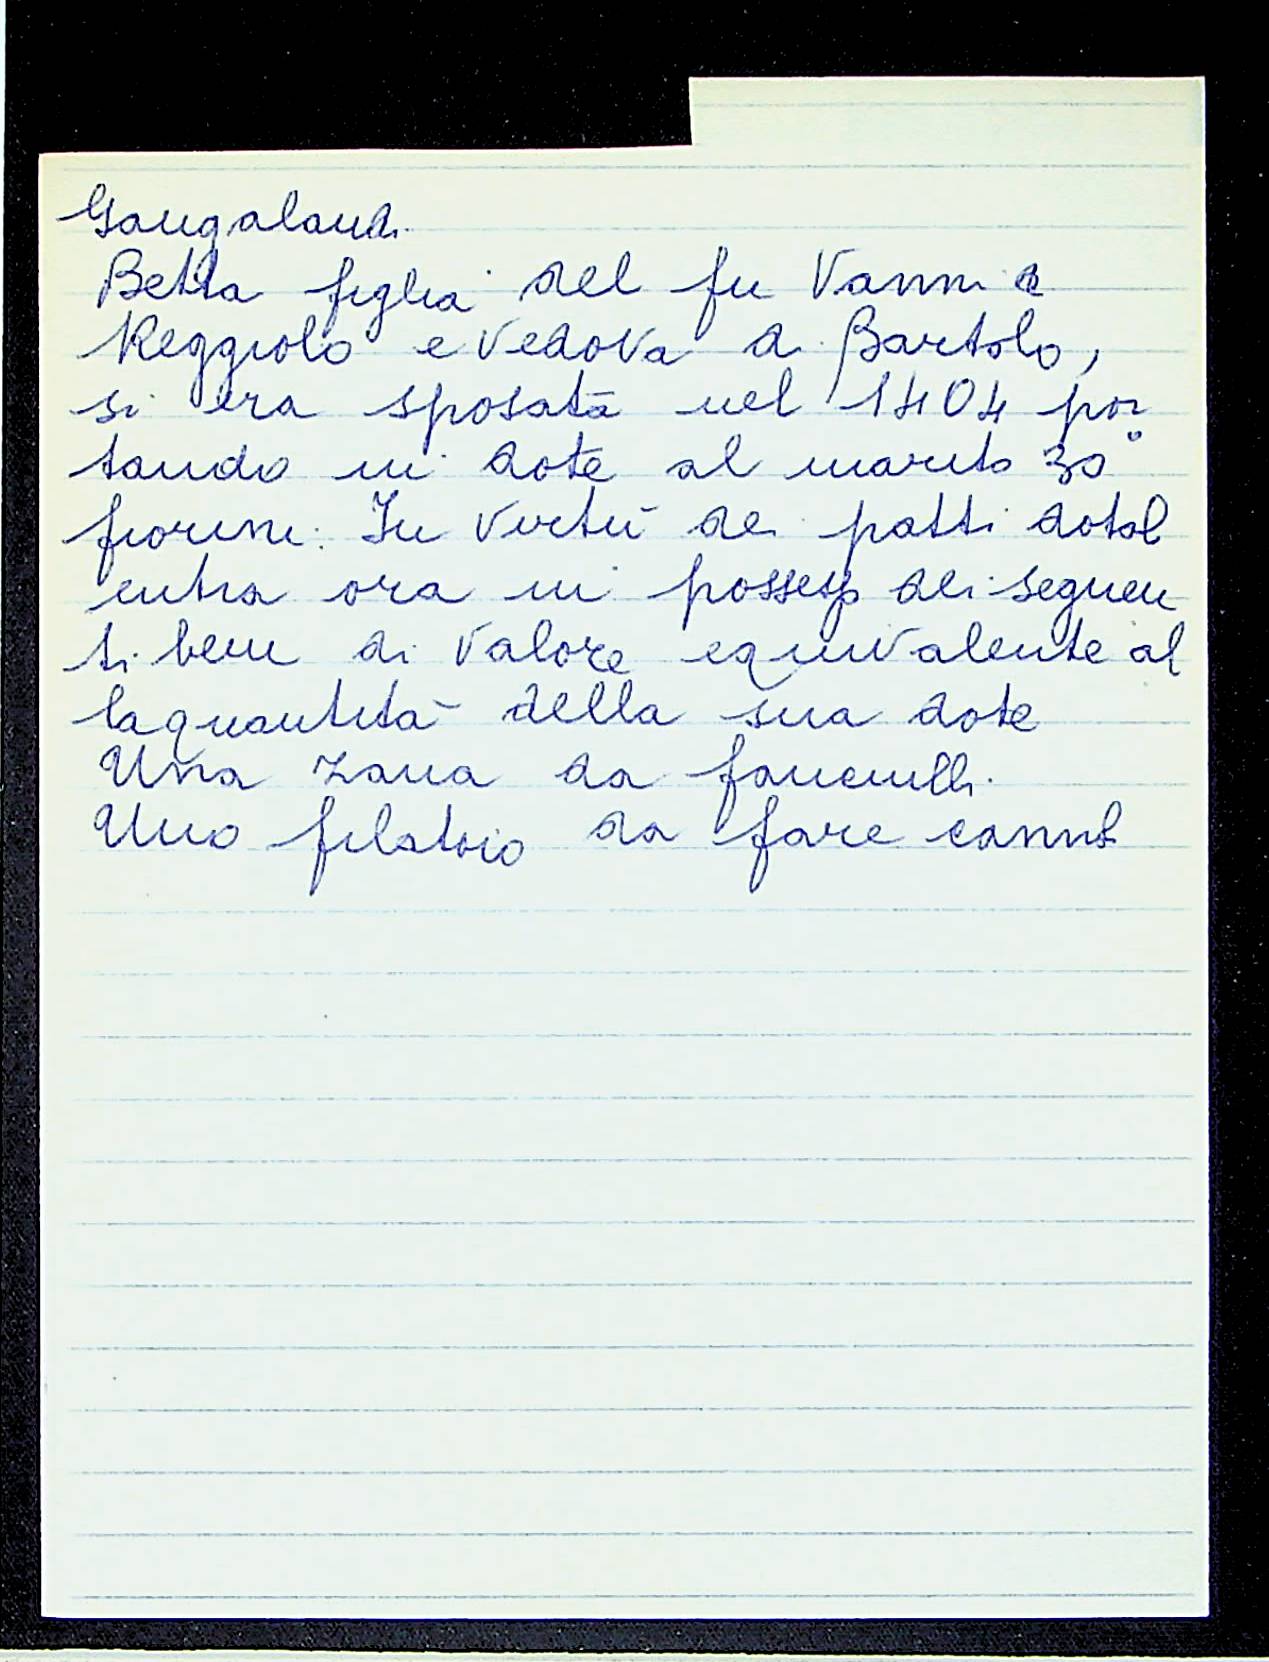 Gangalandi
Betta figlia del fu Vanni di
Reggiolo e vedova di Bartolo,
si era sposata nel 1404 por
tando in dote al marito 30
fiorini. In virtù dei patti dotal
entra ora in possesso dei seguen
ti beni di valore equivalente al
la quantità della sua dote
Una zana da fanciulli.
Uno filatoio da fare canne